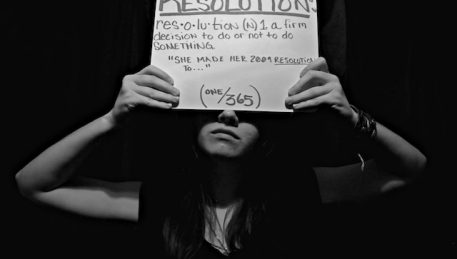 RESOLUTION:
res·o·lu·tion (N) 1 a firm
decision to do or not to do
SOMETHING.
"SHE MADE HER 2009 RESOLUTION
TO..."
(ONE/365)